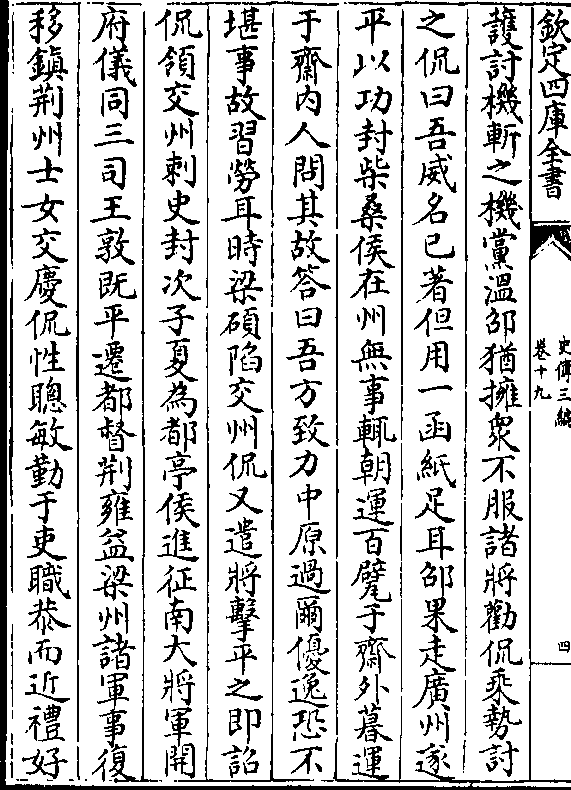 欽定四庫全書
史傳三編
卷十九
四
䕶討機斬之機黨溫邵猶擁衆不服諸將勸侃乘勢討
之侃曰吾威名已著但用一函紙足耳邵果走廣州遂
平以功封柴桑侯在州無事輒朝運百甓于齋外暮運
于齋内人問其故答曰吾方致力中原過爾優逸恐不
堪事故習勞耳時梁碩陷交州侃又遣將擊平之即詔
侃領交州刺史封次子夏為都亭侯進征南大將軍開
府儀同三司王敦既平遷都督荆雍益梁州諸軍事復
移鎮荆州士女交慶侃性聰敏勤于吏職恭而近禮好